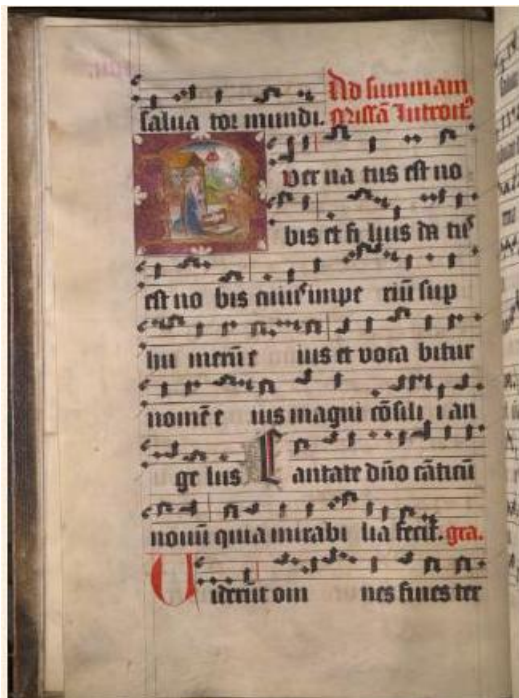 salua tor mundi. Ad summam
Missā Introitꝰ
Puer na tus est no
bis et fi lius da tꝰ
est no bis cuiꝰ impe riū sup
hu merū e ius et voca bitur
nomē e ius magni cōsili i an
ge lus Cantate dño cāticū
nouū quia mirabi lia fecit. gra.
Viderūt om nes fines ter